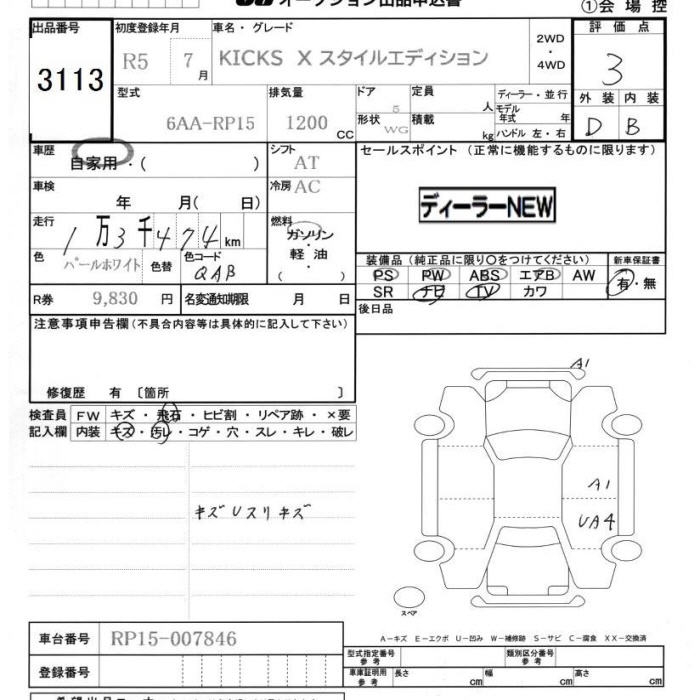 オークション出品申込書
①会場控
出品番号 初度登録年月 車名・グレード 評価点
3113 R5 7月 KICKS X スタイルエディション 2WD・4WD 3
型式 排気量 ドア 定員 ディーラー・並行 外装 内装
6AA-RP15 1200 CC 5 人 モデル年式 年 D B
形状 WG 積載 kg ハンドル 左・右
車歴 シフト セールスポイント (正常に機能するものに限ります)
自家用・( ) AT
車検 冷房 AC
年 月( 日) ディーラーNEW
走行 燃料
1万3千474km ガソリン・軽油・( )
色 色替 色コード 装備品(純正品に限り○をつけてください) 新車保証書
パールホワイト QAB PS PW ABS エアB AW 有・無
SR ナビ TV カワ
R券 9,830 円 名変通知期限 月 日 後日品
注意事項申告欄(不具合内容等は具体的に記入して下さい)
修復歴 有 〔箇所 〕
検査員 FW キズ・飛石・ヒビ割・リペア跡・×要
記入欄 内装 キズ・汚レ・コゲ・穴・スレ・キレ・破レ
A1
A1
キズUスリキズ
UA4
スペア
A-キズ E-エクボ U-凹み W-補修跡 S-サビ C-腐食 XX-交換済
車台番号 RP15-007846
型式指定番号参考 類別区分番号参考
登録番号 車庫証明用参考 長さ cm 幅 cm 高さ cm